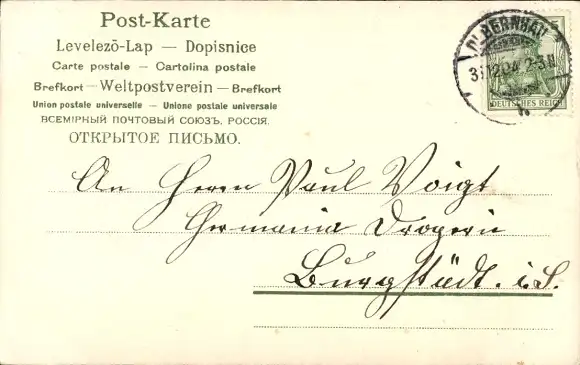 Post-Karte
Levelező-Lap — Dopisnice
Carte postale — Cartolina postale
Brefkort — Weltpostverein — Brefkort
Union postale universelle — Unione postale universale
ВСЕМІРНЫЙ ПОЧТОВЫЙ СОЮЗЪ. РОССІЯ.
ОТКРЫТОЕ ПИСЬМО.
OLBERNHAU
DEUTSCHES REICH
An Herrn Paul Voigt
Germania Drogerie
Burgstädt. i. S.